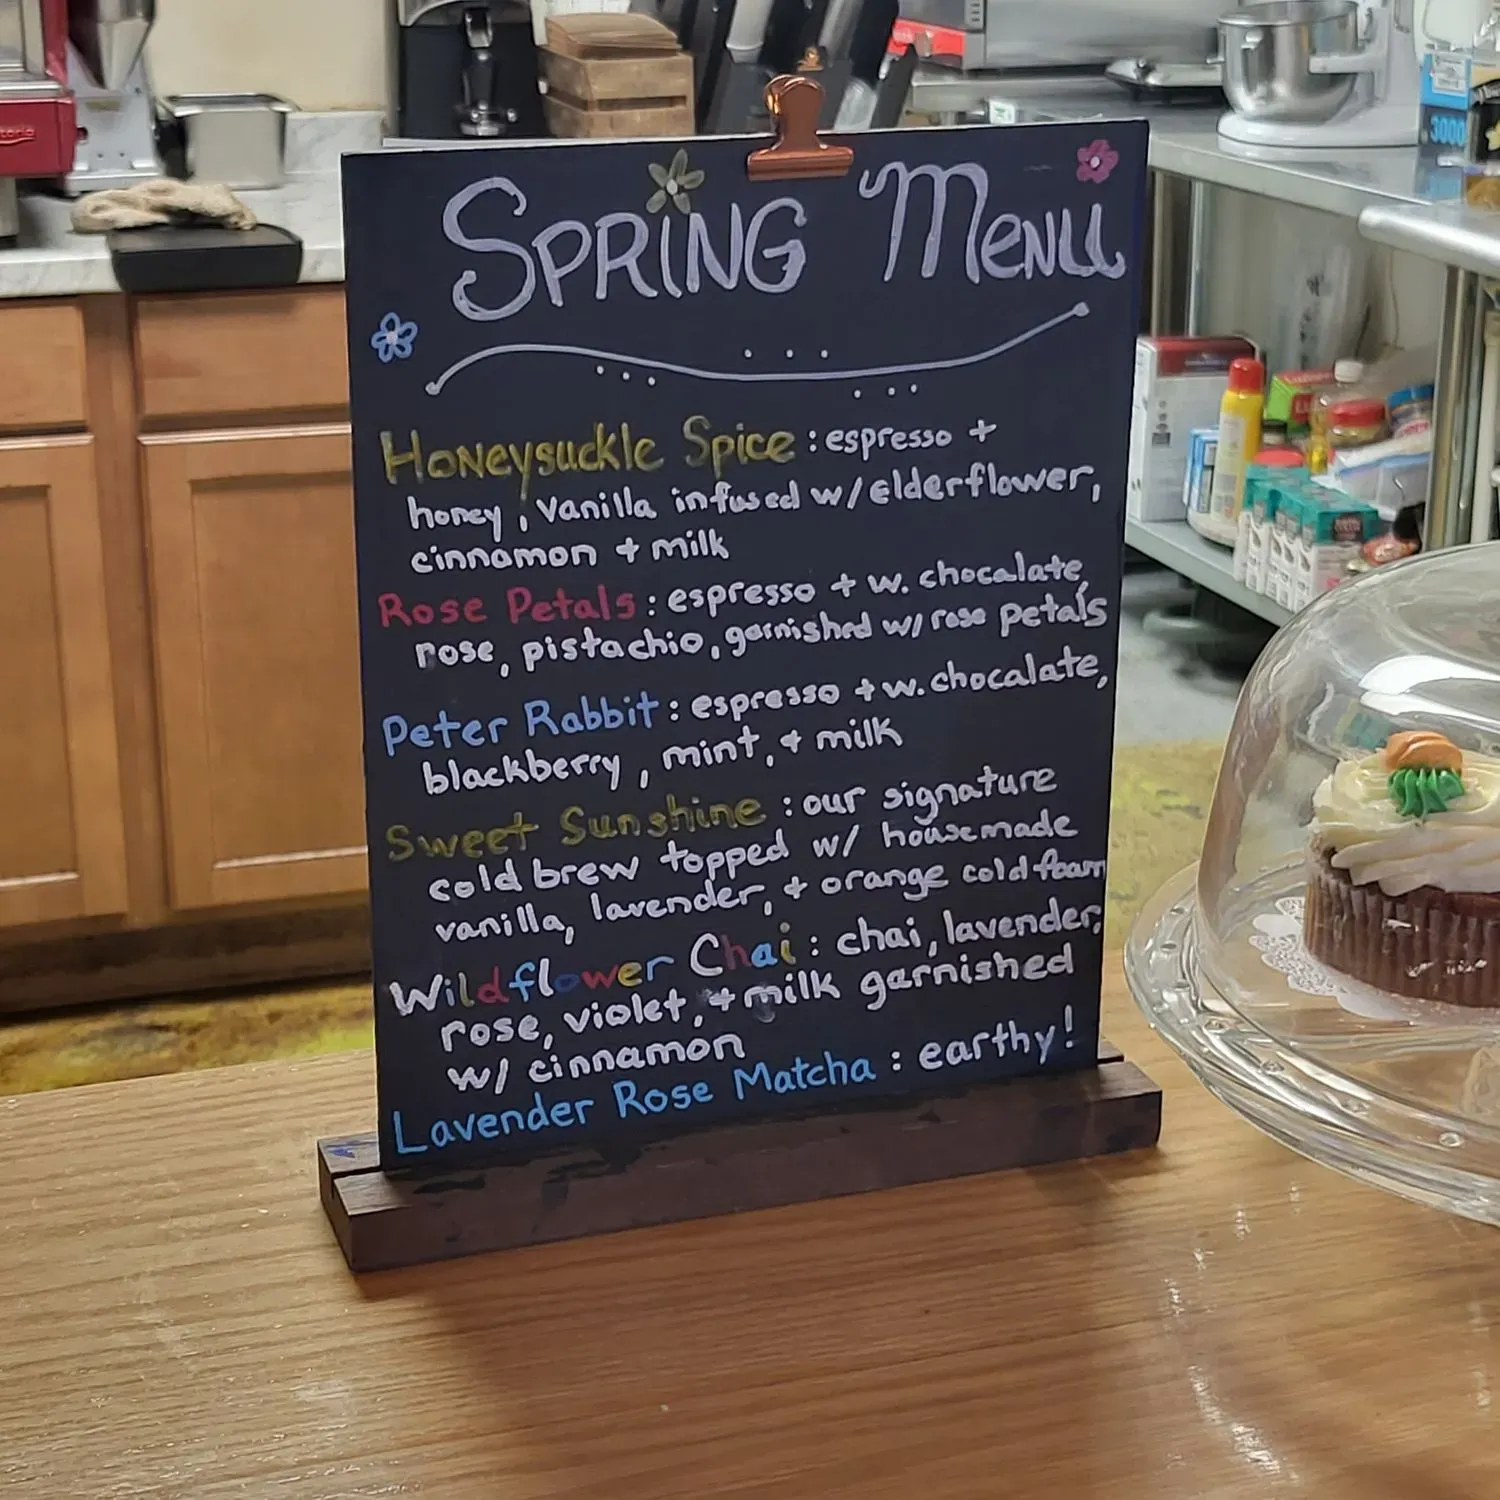 Spring Menu
Honeysuckle Spice : espresso +
honey, vanilla infused w/ elderflower,
cinnamon + milk
Rose Petals : espresso + w. chocolate,
rose, pistachio, garnished w/ rose petals
Peter Rabbit : espresso + w. chocolate,
blackberry, mint, + milk
Sweet Sunshine : our signature
cold brew topped w/ housemade
vanilla, lavender, + orange cold foam
Wildflower Chai : chai, lavender,
rose, violet, + milk garnished
w/ cinnamon
Lavender Rose Matcha : earthy!
3000